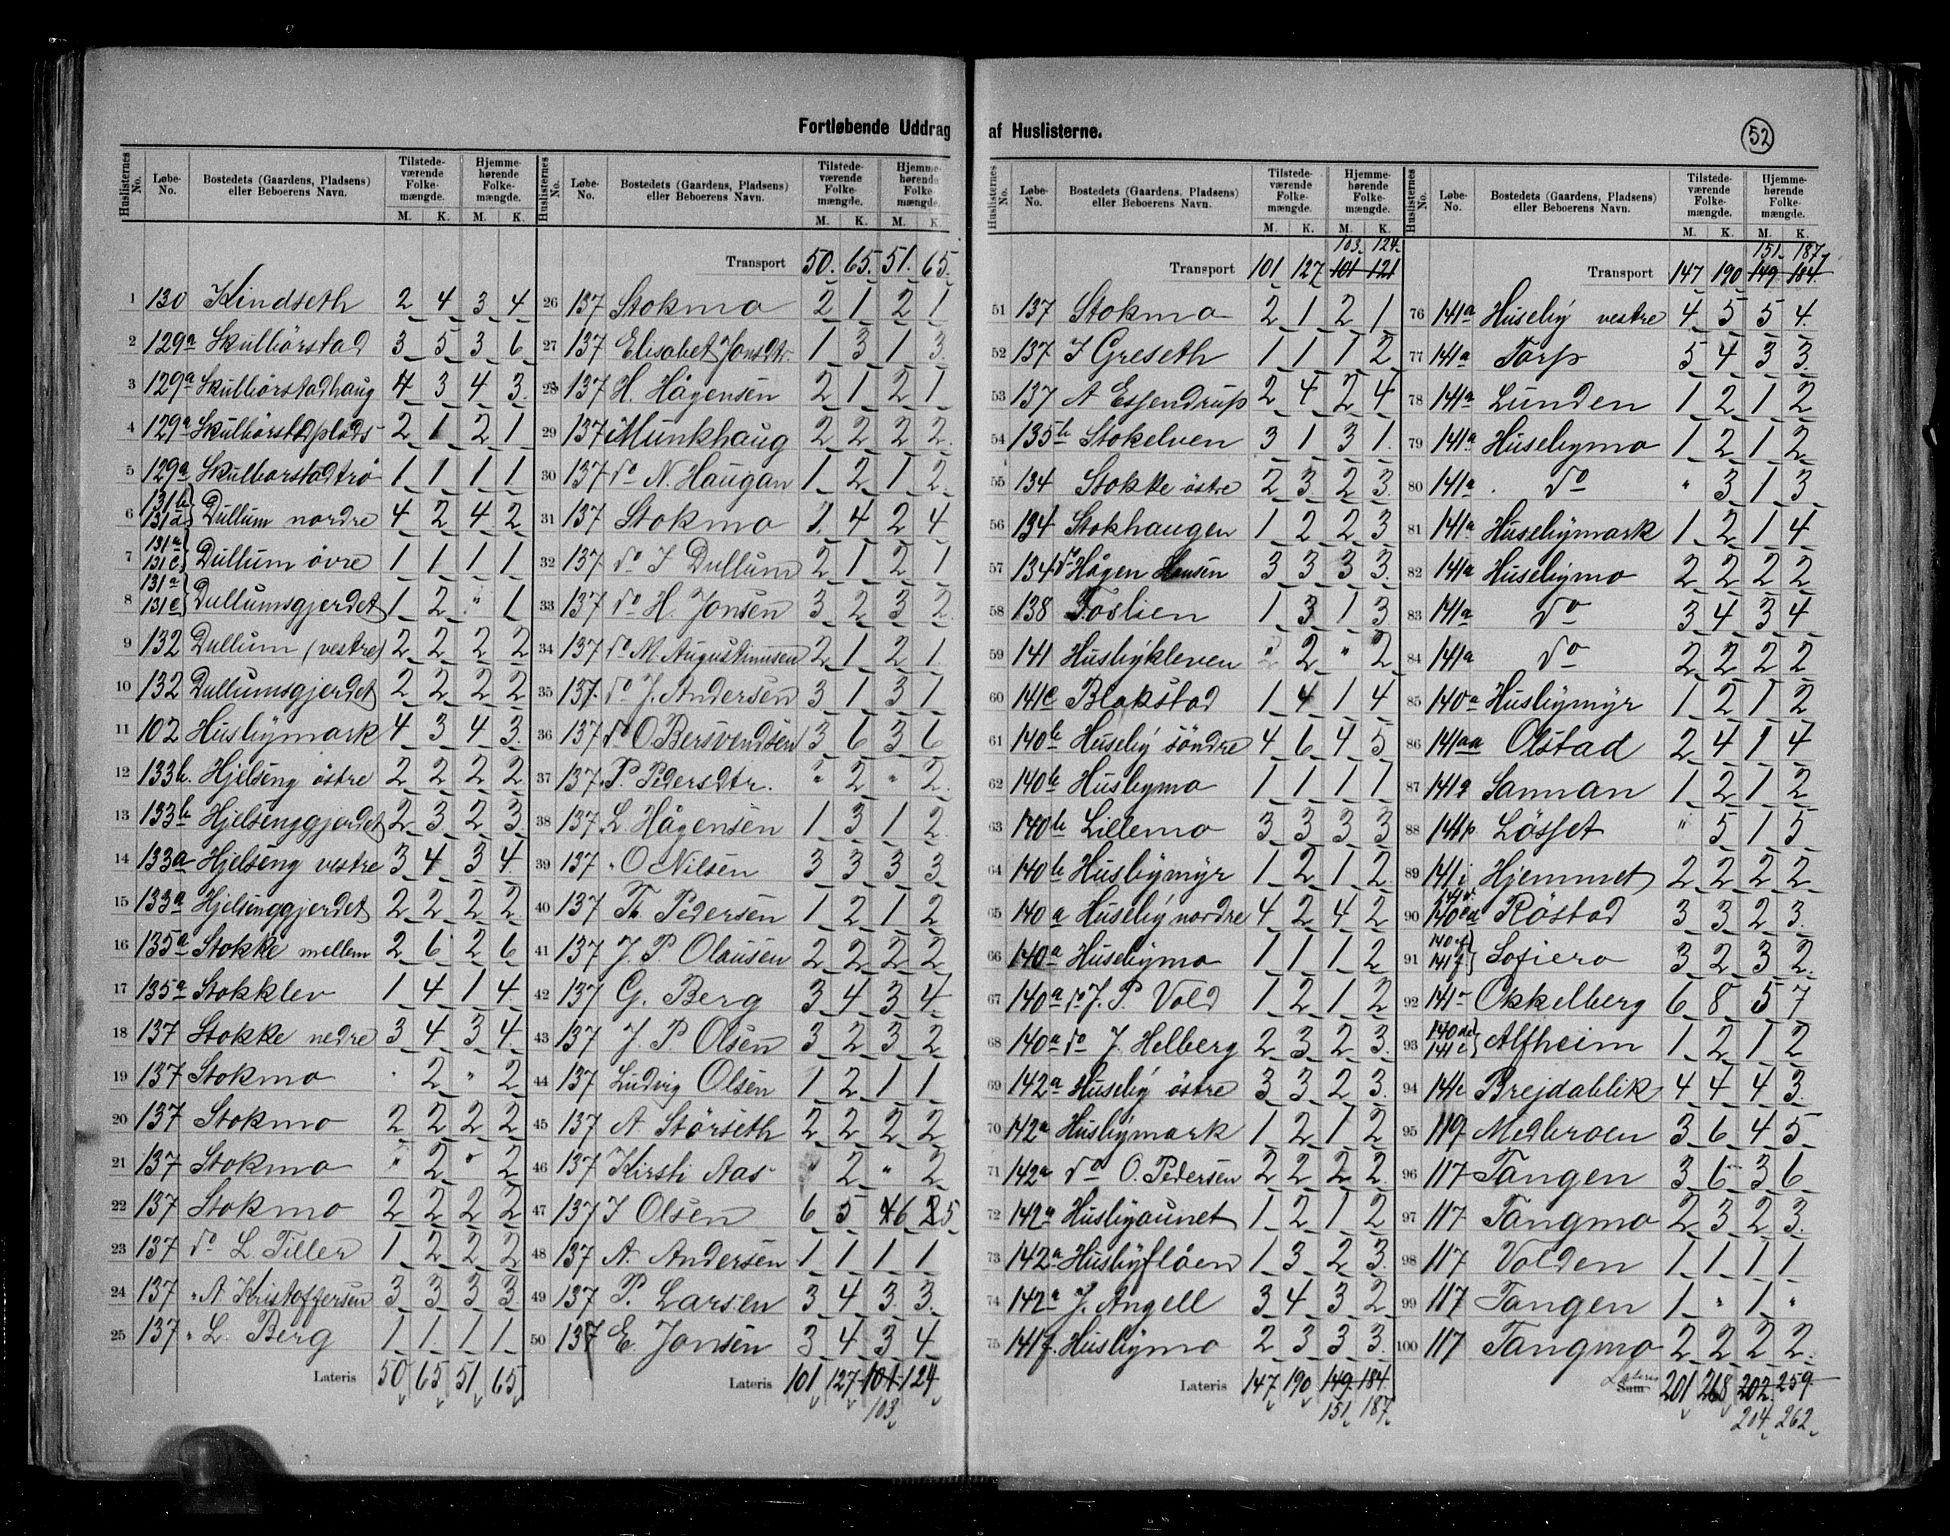 Fortløbende Uddrag af Huslisterne.
52
Huslisternes No. Løbe-No. Bostedets (Gaardens, Pladsens) eller Beboerens Navn. Tilstedeværende Folkemængde. M. K. Hjemmehørende Folkemængde. M. K.
1 130 Kindseth 2 4 3 4
2 129a Skulbörstad 3 5 3 6
3 129a Skulbörstadhaug 4 3 4 3
4 129a Skulbörstadplads 2 1 2 1
5 129a Skulborstadtrö 1 1 1 1
6 131b 131d } Dullum nordre 4 2 4 2
7 131a 131c } Dullum övre 1 1 1 1
8 131a 131c } Dullumsgjerdet 1 2 " 1
9 132 Dullum (vestre) 2 2 2 2
10 132 Dullumsgjerdet 2 2 2 2
11 102 Husbymark 4 3 4 3
12 133b. Hjelseng östre 2 2 2 2
13 133b Hjelsenggjerdet 2 3 2 3
14 133a Hjelseng vestre 3 4 3 4
15 133a Hjelsenggjerdet 2 2 2 2
16 135a Stokke mellem 2 6 2 6
17 135a Stokklev 1 4 1 4
18 137 Stokke nedre 3 4 3 4
19 137 Stokmo " 2 " 2
20 137 Stokmo 2 2 2 2
21 137 Stokmo " 2 " 2
22 137 Stokmo 2 2 2 2
23 137 do L. Tiller 1 2 2 2
24 137 " A Kristoffersen 3 3 3 3
25 137 " L. Berg 1 1 1 1
Lateris 50 65 51 65
Huslisternes No. Løbe-No. Bostedets (Gaardens, Pladsens) eller Beboerens Navn. Tilstedeværende Folkemængde. M. K. Hjemmehørende Folkemængde. M. K.
Transport 50. 65. 51. 65.
26 137 Stokmo 2 1 2 1
27 137 Elisabet Jonsdtr. 1 3 1 3
28 137 H. Hågensen 2 1 2 1
29 137 Munkhaug 2 2 2 2
30 137 do N. Haugan 1 2 1 2
31 137 Stokmo 1 4 2 4
32 137 do J Dullum 2 1 2 1
33 137 do H. Jonsen 3 2 3 2
34 137 do M. Augustinusen 2 1 2 1
35 137. do J. Andersen 3 1 3 1
36 137 do O. Bersvendsen 3 6 3 6
37 137. P. Pedersdtr. " 2 " 2
38 137 L. Hågensen 1 3 1 2
39 137 " O Nilsen 3 3 3 3
40 137 Th. Pedersen 1 2 1 2
41 137 J. P. Olausen 2 2 2 2
42 137 G. Berg 3 4 3 4
43 137 J. P. Olsen 3 2 3 2
44 137 Ludvig Olsen 1 2 1 1
45 137 A Störseth 2 2 2 2
46 137 Kirsti Aas " 2 " 2
47 137 J Olsen 6 5 6 5
48 137 A. Andersen 1 1 1 1
49 137 P. Larsen 3 4 3 3
50 137 E. Jonsen 3 4 3 4
Lateris 101 127 101 124
103
Huslisternes No. Løbe-No. Bostedets (Gaardens, Pladsens) eller Beboerens Navn. Tilstedeværende Folkemængde. M. K. Hjemmehørende Folkemængde. M. K.
103 124
Transport 101 127 101 121
51 137 Stokmo 2 1 2 1
52 137 J Greseth 1 1 1 2
53 137 A Essendrup 2 4 2 4
54 135b Stokelven 3 1 3 1
55 134 Stokke östre 2 3 2 3
56 134 Stokhaugen 1 2 2 3
57 134 do Hågen Hansen 3 3 3 3
58 138 Foslien 1 3 1 3
59 141 Husbykleven " 2 " 2
60 141c Blakstad 1 4 1 4
61 140b Huseby söndre 4 6 4 5
62 140b Husbymo 1 1 1 1
63 140b Lillemo 3 3 3 3
64 140b Husbymyr 1 2 1 2
65 140a Huseby nordre 4 2 4 2
66 140a Husebymo 1 1 1 2
67 140a do J. P. Vold 1 2 1 2
68 140a do J. Helberg 2 3 2 3
69 142a Huseby östre 3 3 2 3
70 142a Husbymark 1 2 1 2
71 142a do O. Pedersen 2 2 2 2
72 142a Husbyaunet 1 2 1 2
73 142a Husbyflöen 1 3 2 3
74 142a J. Angell 3 4 3 2
75 141f. Husbymo 2 3 3 3
Lateris 147 190 149 184
151 187
Huslisternes No. Løbe-No. Bostedets (Gaardens, Pladsens) eller Beboerens Navn. Tilstedeværende Folkemængde. M. K. Hjemmehørende Folkemængde. M. K.
151 187
Transport 147 190 149 184
76 141a Huseby vestre 4 5 5 4
77 141a Torp 5 4 3 3
78 141a Lunden 1 2 1 2
79 141a. Husebymo 1 2 1 2
80 141a. do " 3 1 3
81 141a Husebymark 1 2 1 4
82 141a Husebymo 2 2 2 2
83 141a do 3 4 3 4
84 141a do 2 2 2 2
85 140a Husbymyr 1 2 1 2
86 141aa Olstad 2 4 1 4
87 141q Sannan 1 2 1 2
88 141p Lösset " 5 1 5
89 141i Hjemmet 2 2 2 2
90 Röstad 3 3 2 3
91 140f 141f } Sofiero 3 2 3 2
92 141r Okkelberg 6 8 5 7
93 140d 141c } Alfheim 1 2 1 2
94 141e Brejdablik 4 4 4 3
95 119 Medbroen 3 6 4 5
96 117 Tangen 3 6 3 6
97 117 Tangmo 2 3 2 3
98 117 Volden 1 1 1 1
99 117 Tangen 1 " 1 "
100 117 Tangmo 2 2 2 2
Lateris Sum 201 268 202 259
204 262